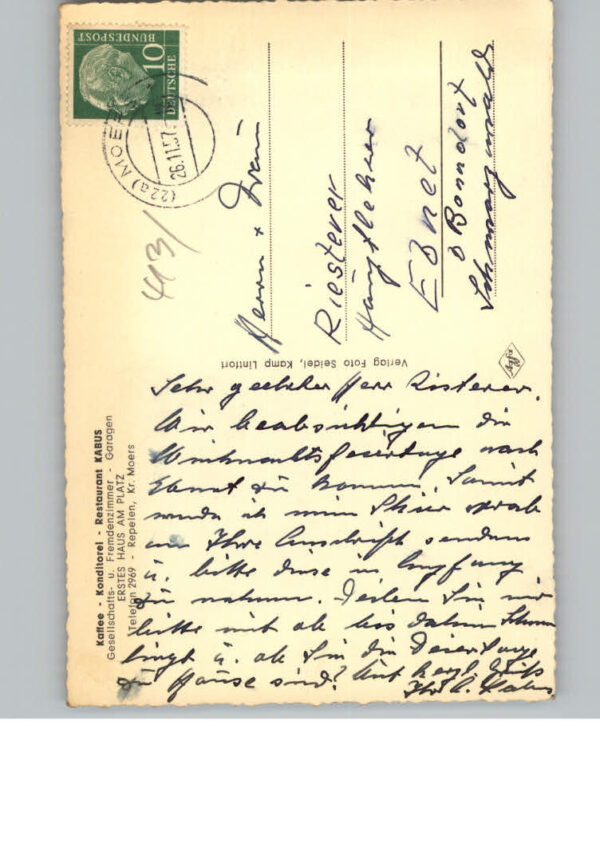 Kaffee - Konditorei - Restaurant KABUS
Gesellschafts- u. Fremdenzimmer - Garagen
ERSTES HAUS AM PLATZ
Telefon 2969 - Repelen, Kr. Moers
Sehr geehrter Herr Risterer.
Wir beabsichtigen die
Weihnachtsfeiertage nach
Ebnet zu kommen. Somit
werde ich meine Skier vorab
an Ihre Anschrift senden
u. bitte diese in Empfang
zu nehmen. Teilen Sie mir
bitte mit ob bis dahin Schnee
liegt u. ob Sie die Feiertage
zu Hause sind? Mit herzl. Gruß
Ihr A. Kabus
Verlag Foto Seidel, Kamp Lintfort
Agfa
DEUTSCHE
BUNDESPOST
10
(22a) MOERS
26.11.57
413/
Herrn + Frau
Riesterer
Hauptlehrer
Ebnet
b Bonndorf
Schwarzwald